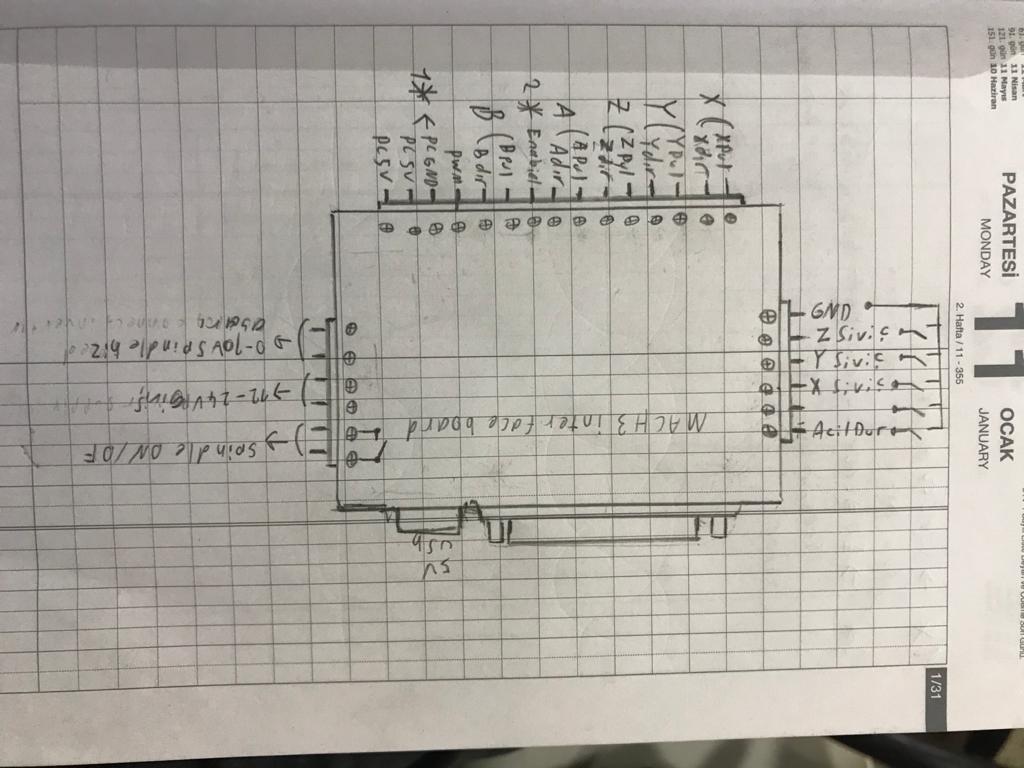 91. gün 11 Nisan
121. gün 11 Mayıs
151. gün 10 Haziran
PAZARTESİ
MONDAY
11
2. Hafta / 11 - 355
OCAK
JANUARY
1/31
X ( Xpul
Xdir
Y ( Ypul
Ydir
Z ( Zpul
Zdir
A ( Apul
Adir
2* Enabıd
B ( Bpul
Bdir
pwm
1** ← PCGND
PC5V
PC5V
GND
Z Siviç
Y Siviç
X Siviç
Acil Dur
MACH3 interface board
0-10V spindle hız
12-24V
Spindle ON/OF
USB
5V